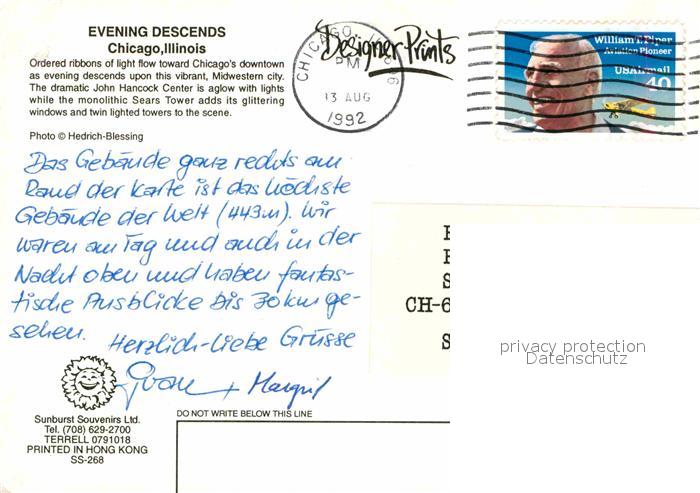 EVENING DESCENDS
Chicago,Illinois
Ordered ribbons of light flow toward Chicago's downtown
as evening descends upon this vibrant, Midwestern city.
The dramatic John Hancock Center is aglow with lights
while the monolithic Sears Tower adds its glittering
windows and twin lighted towers to the scene.
Photo © Hedrich-Blessing
Designer Prints
CHICAGO, IL
PM
13 AUG
1992
William T. Piper
Aviation Pioneer
USAirmail
40
Das Gebäude ganz rechts am
Rand der Karte ist das höchste
Gebäude der Welt (443m). Wir
waren am Tag und auch in der
Nacht oben und haben fantas-
tische Ausblicke bis 30km ge-
sehen. Herzlich-liebe Grüsse
+ Margrit
CH-6
S
S
privacy protection
Datenschutz
Sunburst Souvenirs Ltd.
Tel. (708) 629-2700
TERRELL 0791018
PRINTED IN HONG KONG
SS-268
DO NOT WRITE BELOW THIS LINE